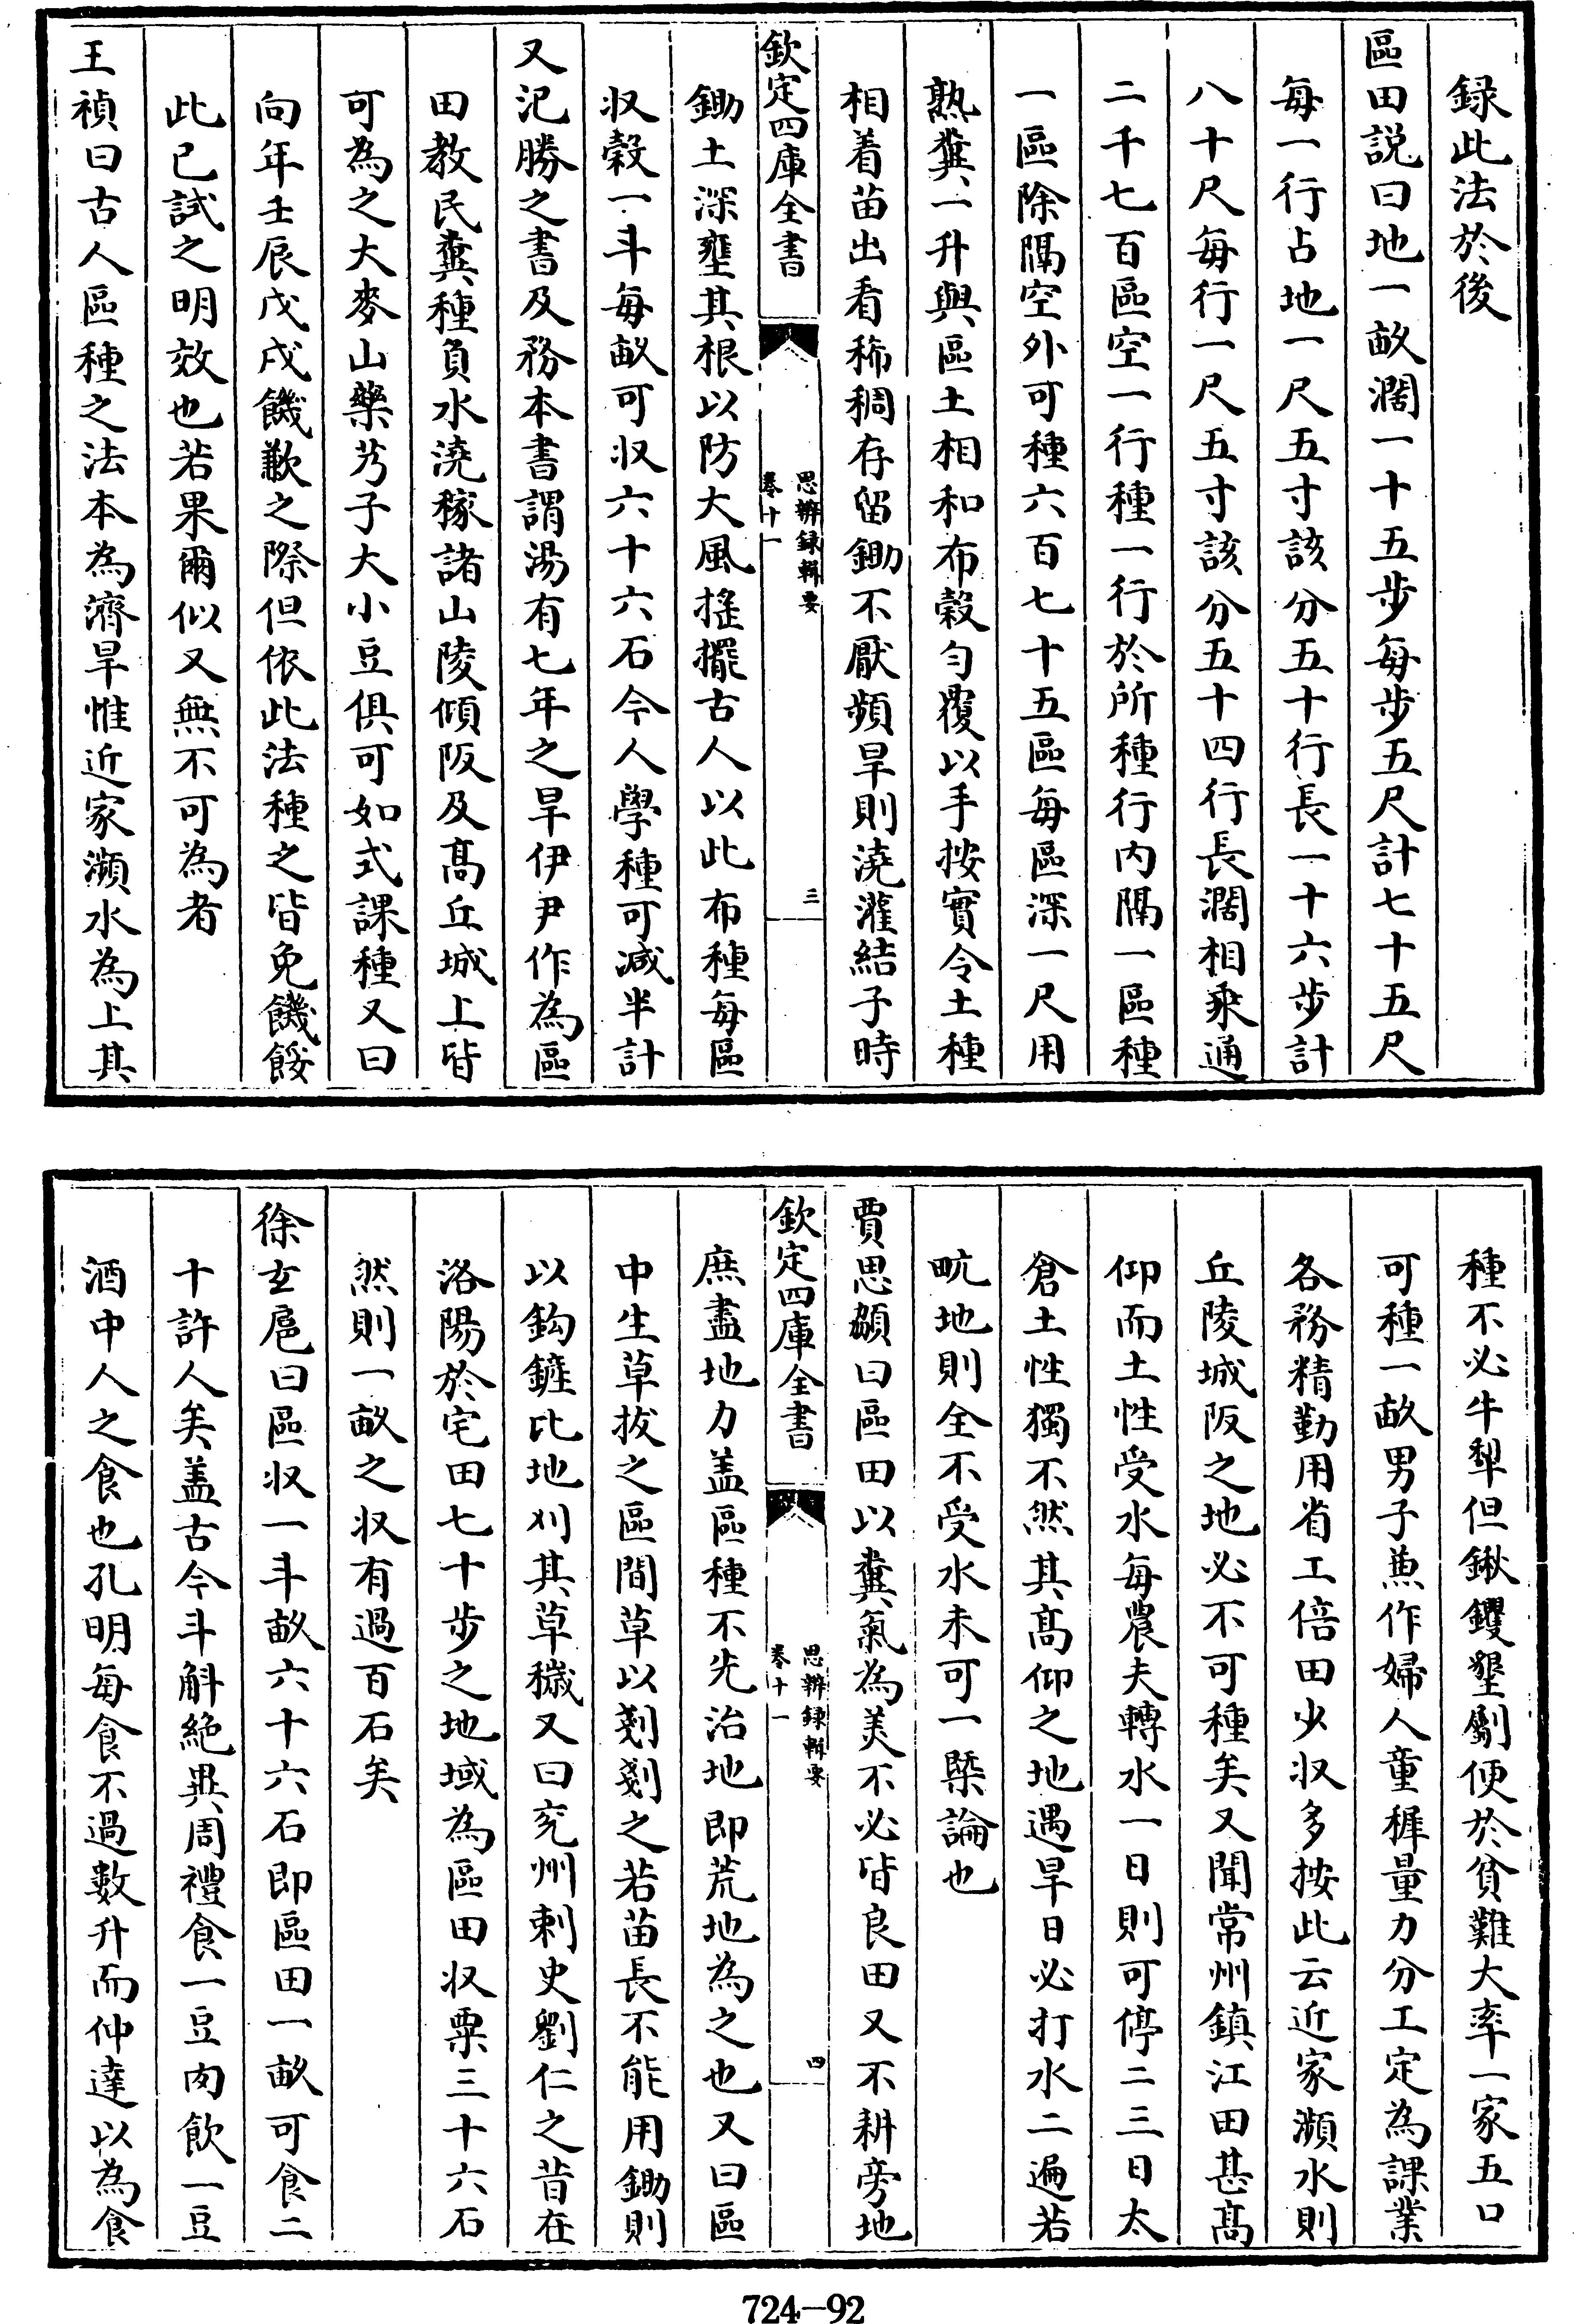 録此法於後
區田説曰地一畝濶一十五步每步五尺計七十五尺
每一行占地一尺五寸該分五十行長一十六步計
八十尺每行一尺五寸該分五十四行長濶相乘通
二千七百區空一行種一行於所種行内隔一區種
一區除隔空外可種六百七十五區每區深一尺用
熟糞一升與區土相和布穀勻覆以手按實令土種
相着苗出看稀稠存留鋤不厭頻旱則澆灌結子時
欽定四庫全書
思辨録輯要
卷十一
三
鋤土深壅其根以防大風搖擺古人以此布種每區
收穀一斗每畝可收六十六石今人學種可減半計
又氾勝之書及務本書謂湯有七年之旱伊尹作為區
田教民糞種負水澆稼諸山陵傾阪及髙丘城上皆
可為之大麥山藥芀子大小豆俱可如式課種又曰
向年壬辰戊戌饑歉之際但依此法種之皆免饑餒
此已試之明效也若果爾似又無不可為者
王禎曰古人區種之法本為濟旱惟近家瀕水為上其
種不必牛犁但鍬钁墾劚便於貧難大率一家五口
可種一畝男子兼作婦人童穉量力分工定為課業
各務精勤用省工倍田少收多按此云近家瀕水則
丘陵城阪之地必不可種矣又聞常州鎮江田甚髙
仰而土性受水每農夫轉水一日則可停二三日太
倉土性獨不然其髙仰之地遇旱日必打水二遍若
畮地則全不受水未可一槩論也
賈思勰曰區田以糞氣為美不必皆良田又不耕旁地
欽定四庫全書
思辨録輯要
卷十一
四
庶盡地力盖區種不先治地即荒地為之也又曰區
中生草拔之區間草以剗剗之若苗長不能用鋤則
以鈎鎌比地刈其草穢又曰兖州刺史劉仁之昔在
洛陽於宅田七十步之地域為區田收粟三十六石
然則一畝之收有過百石矣
徐玄扈曰區收一斗畝六十六石即區田一畝可食二
十許人矣盖古今斗斛絶異周禮食一豆肉飲一豆
酒中人之食也孔明每食不過數升而仲達以為食
724—92